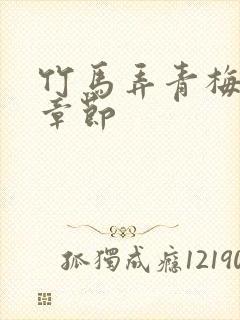 竹馬弄青梅
章節
孤獨成癮12190